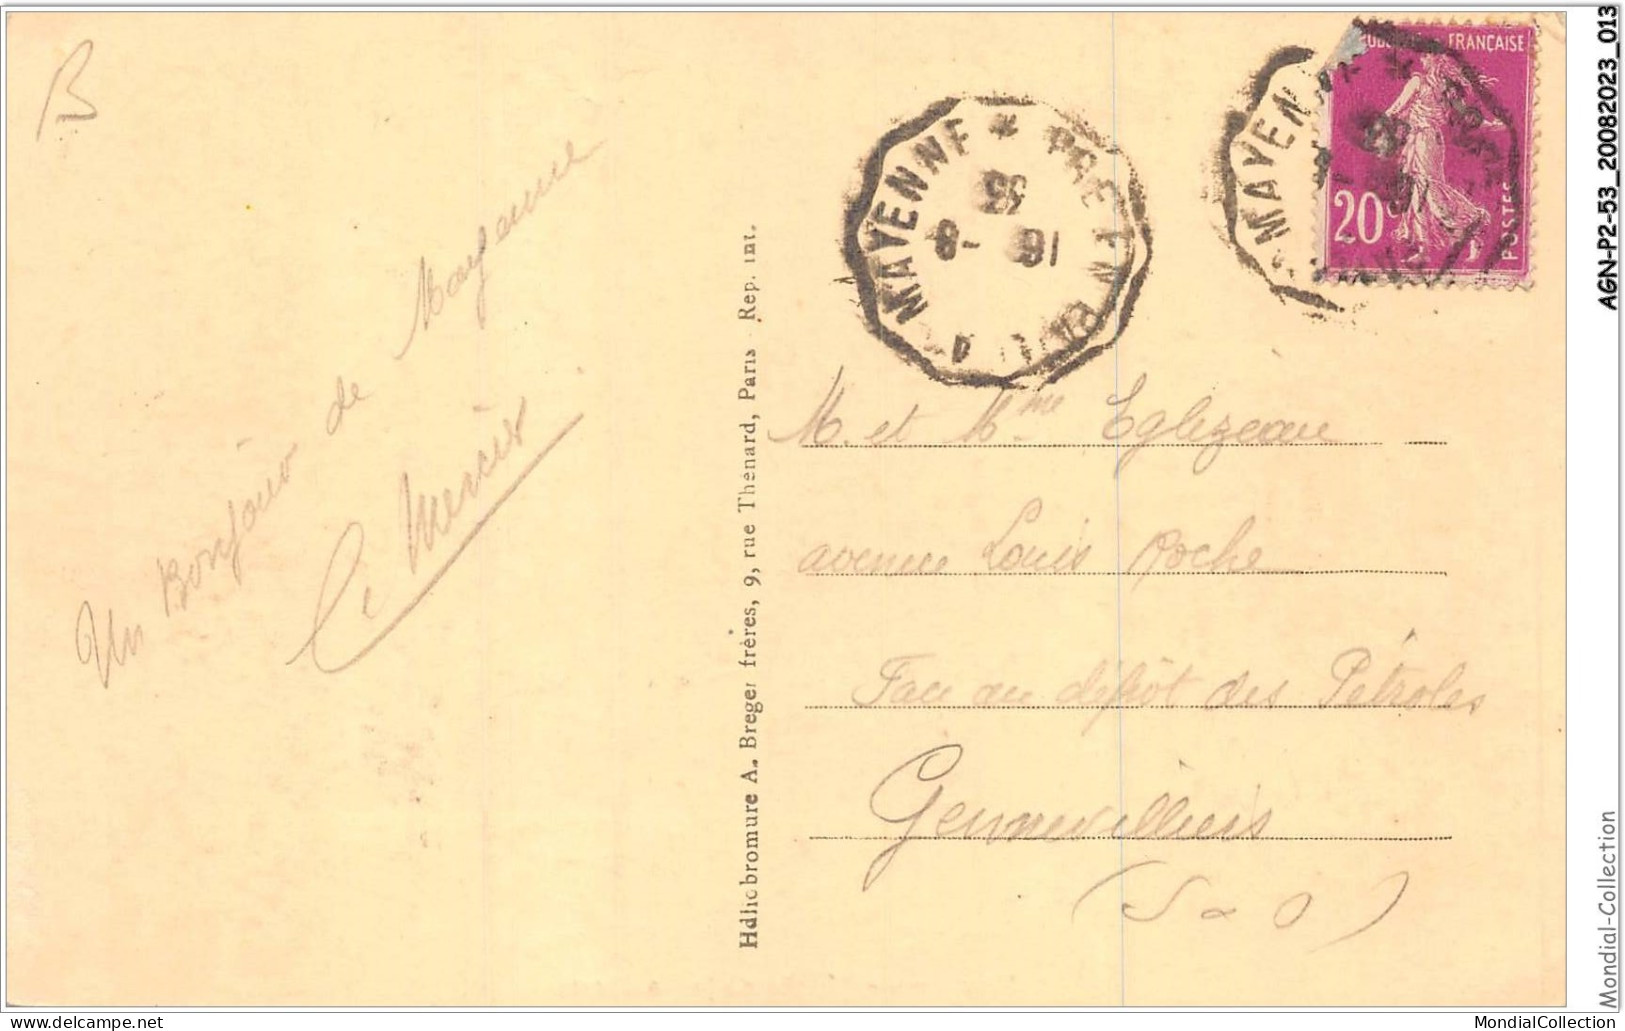 B
Un Bonjour de Mayenne
Mercier
Hdliobromure A. Breger frères, 9, rue Thénard, Paris Rep. int.
MAYENNE * PRE-EN-PAIL
16 -8
35
FRANÇAISE
20c
POSTES
MAYENNE
M. et Mme Eglizeau
avenue Louis Roche
Face au dépôt des Pétroles
Gennevilliers
(S & O)
AGN-P2-53_20082023_013
Mondial-Collection
delcampe.net
MondialCollection